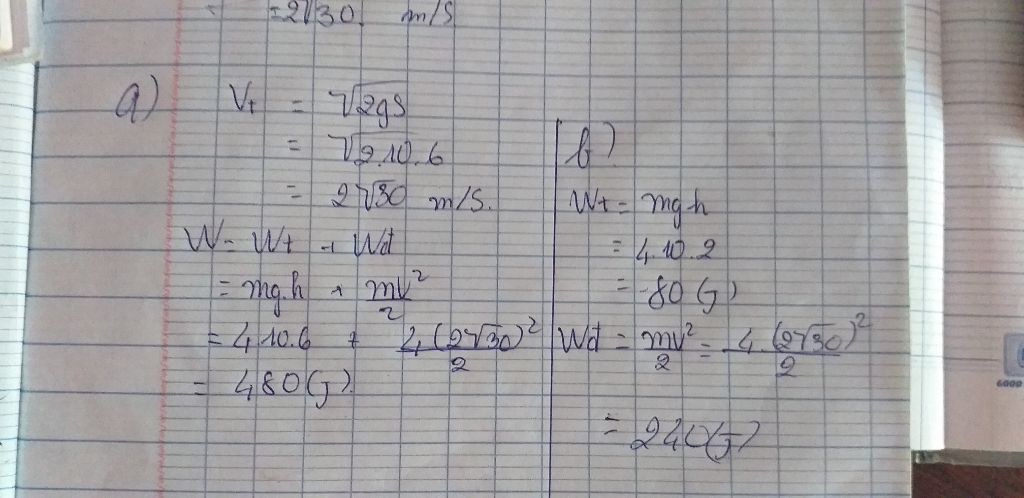 = 2√30 m/s
a) Vt = √2gs
= √2.10.6
= 2√30 m/s.
W = Wt + Wđ
= mg.h + mv²/2
= 4.10.6 + 4(2√30)²/2
= 480(J).
b)
Wt = mgh
= 4.10.2
= 80(J)
Wđ = mv²/2 = 4.(2√30)²/2
= 240(J)
GOOD